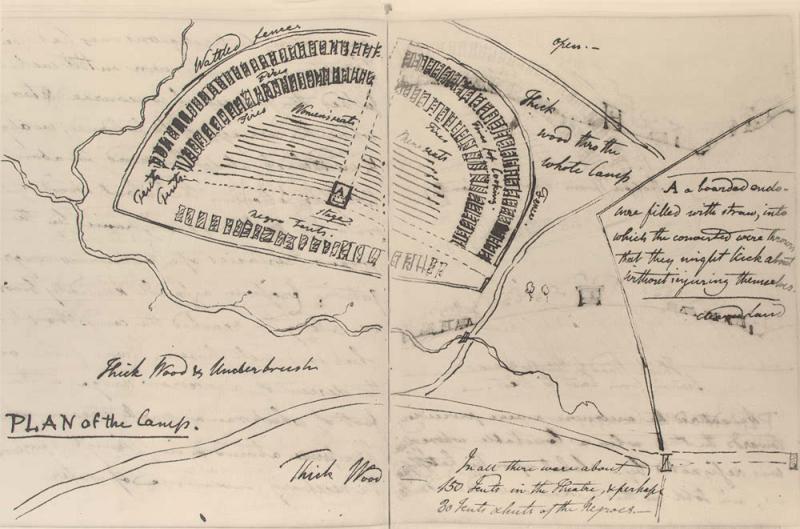 Wattled fences
Fires
Fires
Womens seats
Tents
Tents
A
Stage
Negro Tents.
Mens seats
Fires
Cooking.
Fence.
Open.—
Thick
wood thro the
whole Camp
A a boarded enclo-
sure filled with straw, into
which the converted were thrown
that they might kick about
without injuring themselves.
cleared land
Thick Wood & Underbrush
PLAN of the Camp.
Thick Wood
In all there were about
150 Tents in the Theatre, & perhaps
30 Tents & huts of the Negroes.—